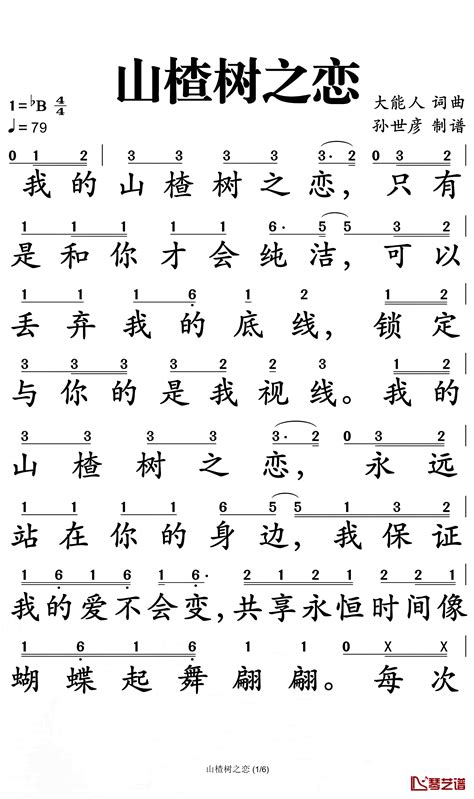 山楂树之恋
1=♭B 4/4
大能人 词曲
♩=79
孙世彦 制谱
0 1 2 | 3 3 3 3 3· 2 0 3 2
我的山楂树之恋，只有
1 1 1 1 1 6· 5 5 3 2
是和你才会纯洁，可以
1 1 1 6 1 3 1 2
丢弃我的底线，锁定
3 3 3 3 2 2 3 1 2
与你的是我视线。我的
3 3 3 3 3· 2 0 3 2
山楂树之恋，永远
1 1 1 1 6 5 5 1 3 2
站在你的身边，我保证
1 6 1 6 1 6· 2 1 2 1 2 2 1
我的爱不会变，共享永恒时间像
1 6 1 6 1 1 0 X X
蝴蝶起舞翩翩。每次
山楂树之恋 (1/6)
琴艺谱